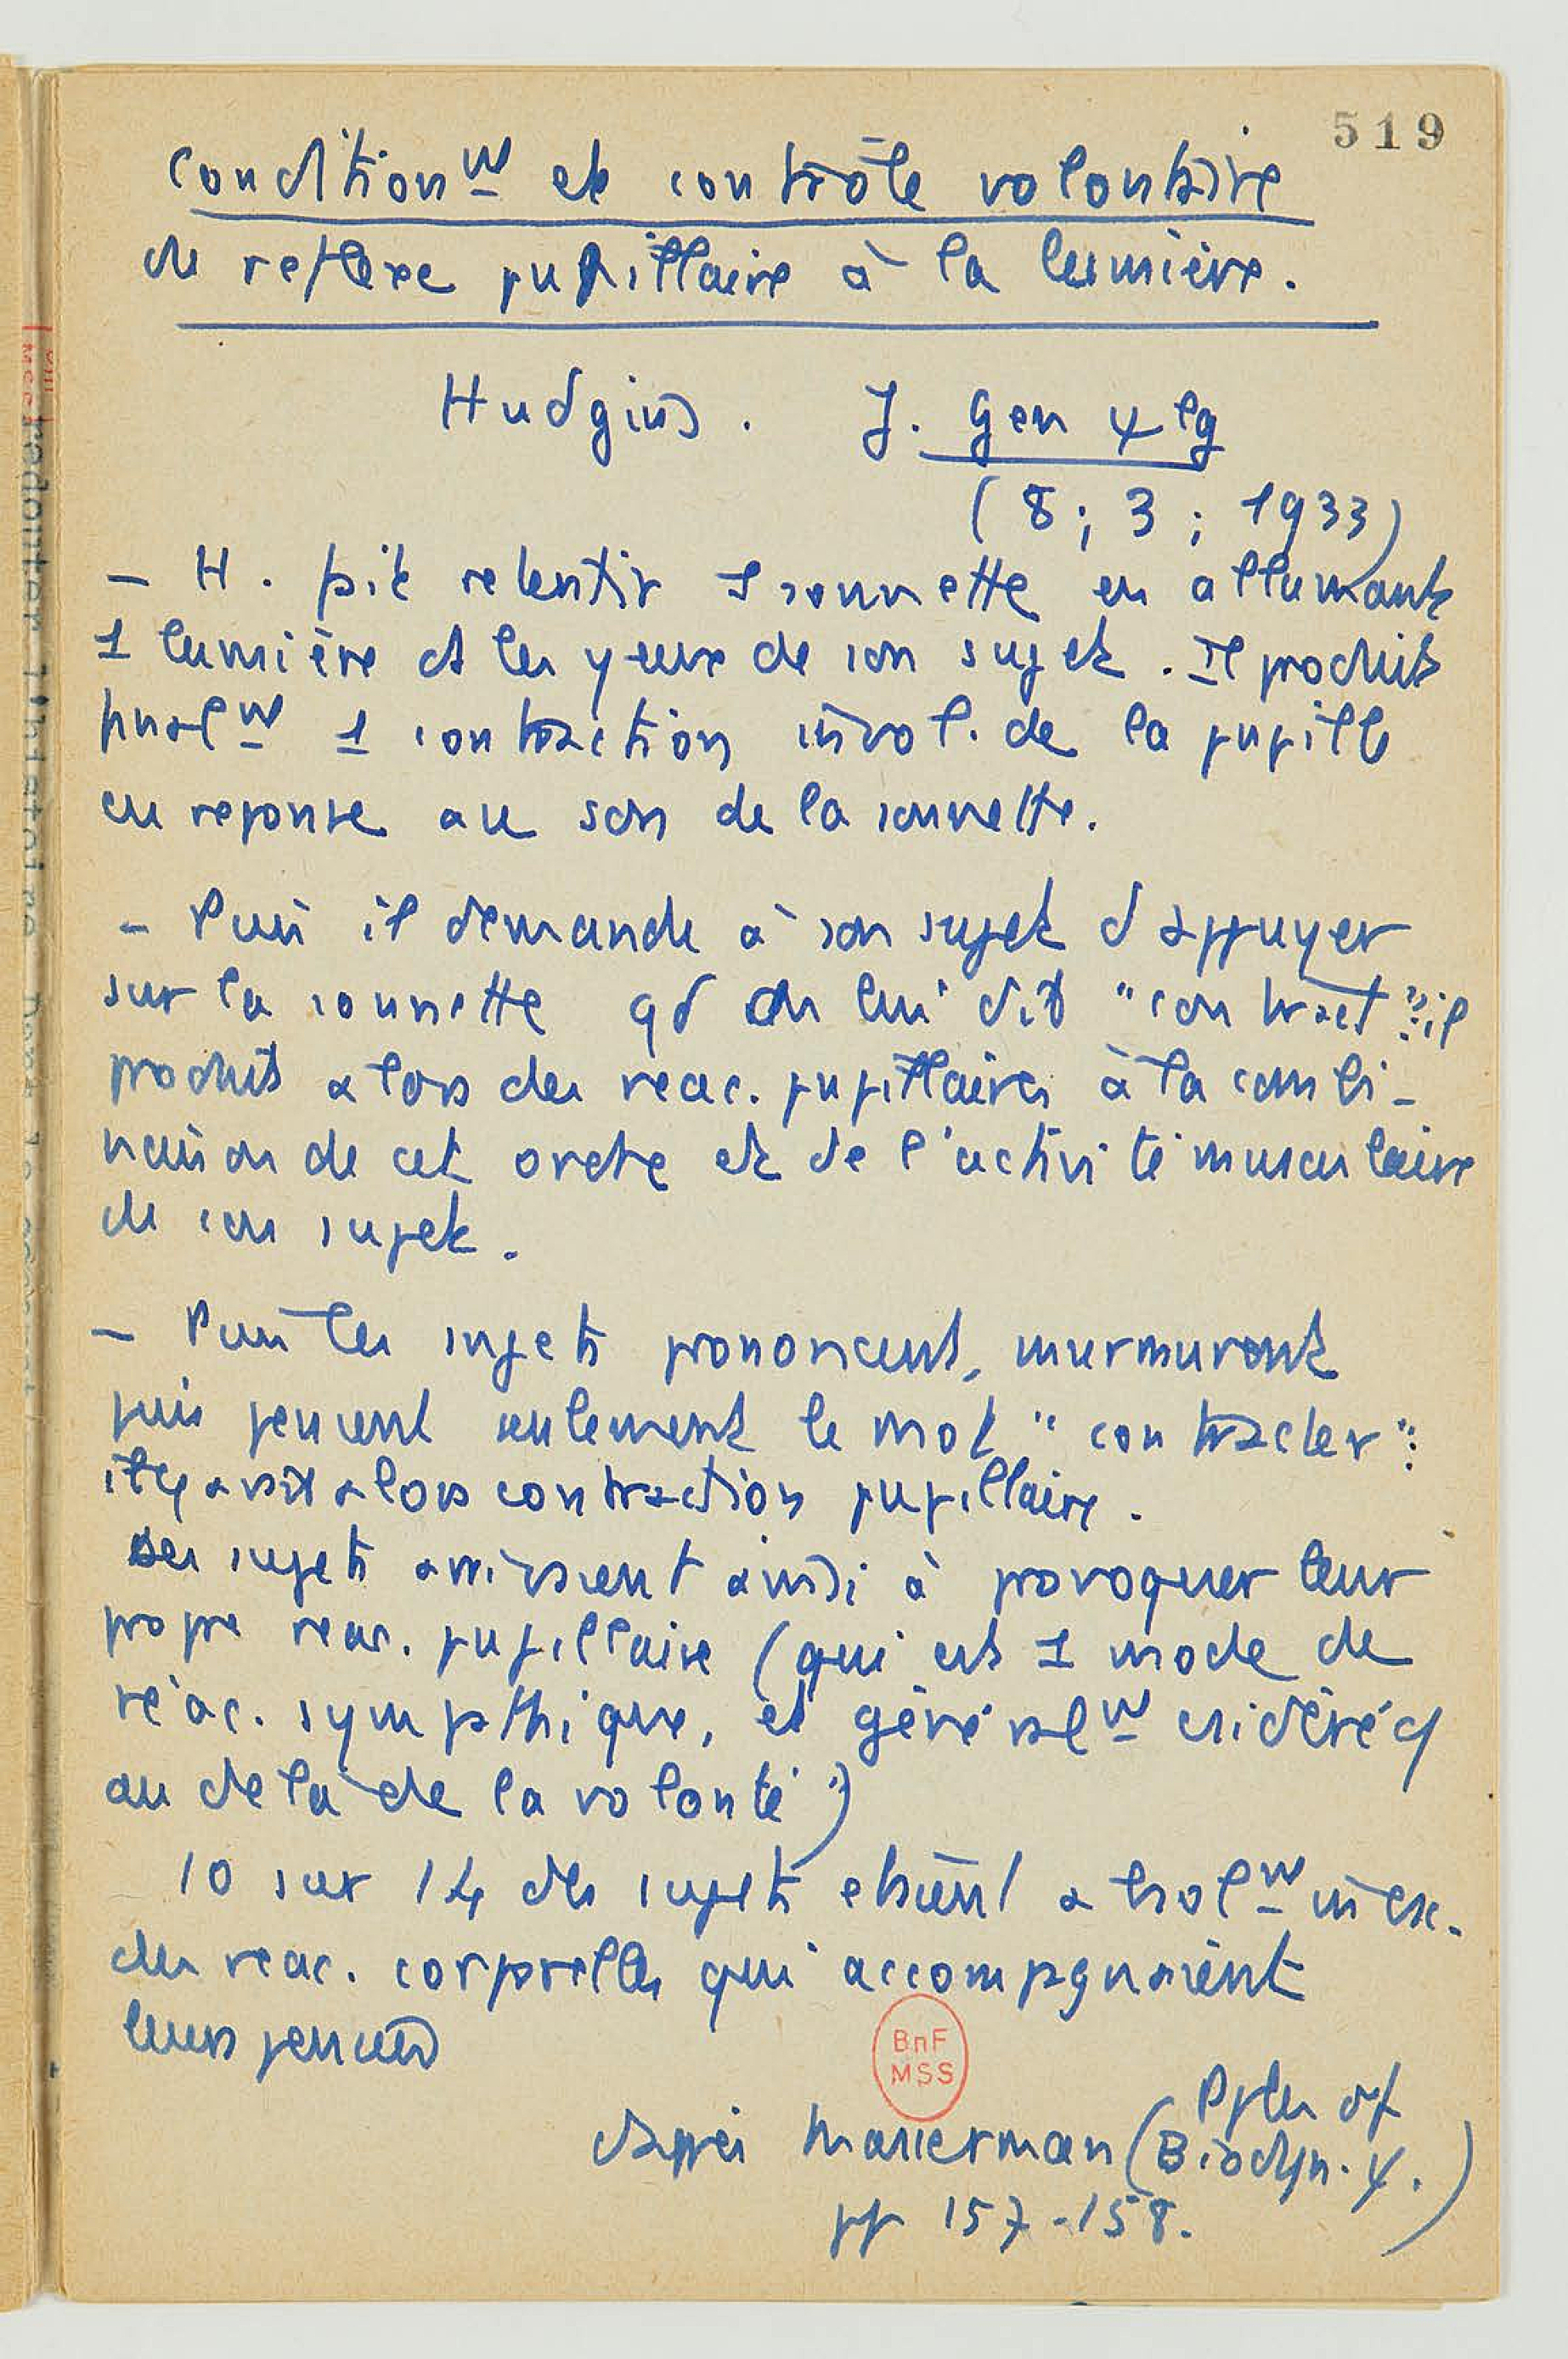 519
Conditionnt et contrôle volontaire
du reflexe pupillaire à la lumière.
Hudgins. J. Gen ψ lg
(8 ; 3 ; 1933)
– H. fait retentir 1 sonnette en allumant
1 lumière ds les yeux de son sujet. Il produit
finalnt 1 contraction invol. de la pupille
en reponse au son de la sonnette.
– Puis il demande à son sujet d'appuyer
sur la sonnette qd on lui dit "contract": il
produit alors des reac. pupillaires à la combi-
naison de cet ordre et de l'activité musculaire
de son sujet.
– Puis les sujets prononcent, murmurent
puis pensent seulement le mot "contracter":
il y avait alors contraction pupillaire.
Des sujets arrivaient ainsi à provoquer leur
propre reac. pupillaire (qui est 1 mode de
réac. sympathique, et généralnt csidéré cȷ
au delà de la volonté")
10 sur 14 des sujets etaient atrolnt incsc.
des reac. corporelles qui accompagnaient
leurs pensées
BnF
MSS
d'après Masserman (Pples of
Biodyn. ψ.)
pp 157-158.